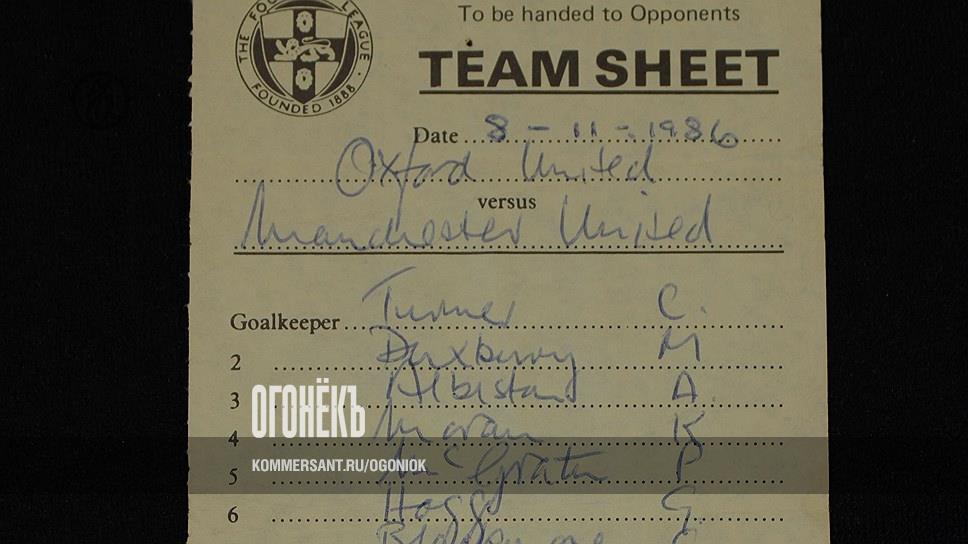 THE FOOTBALL LEAGUE
FOUNDED 1888
To be handed to Opponents
TEAM SHEET
Date 8 - 11 - 1986
Oxford United
versus
Manchester United
Goalkeeper Turner C.
2 Duxbury M
3 Albiston A.
4 Moran K
ОГОНЁКЪ
KOMMERSANT.RU/OGONIOK
5 McGrath P
6 Hogg G.